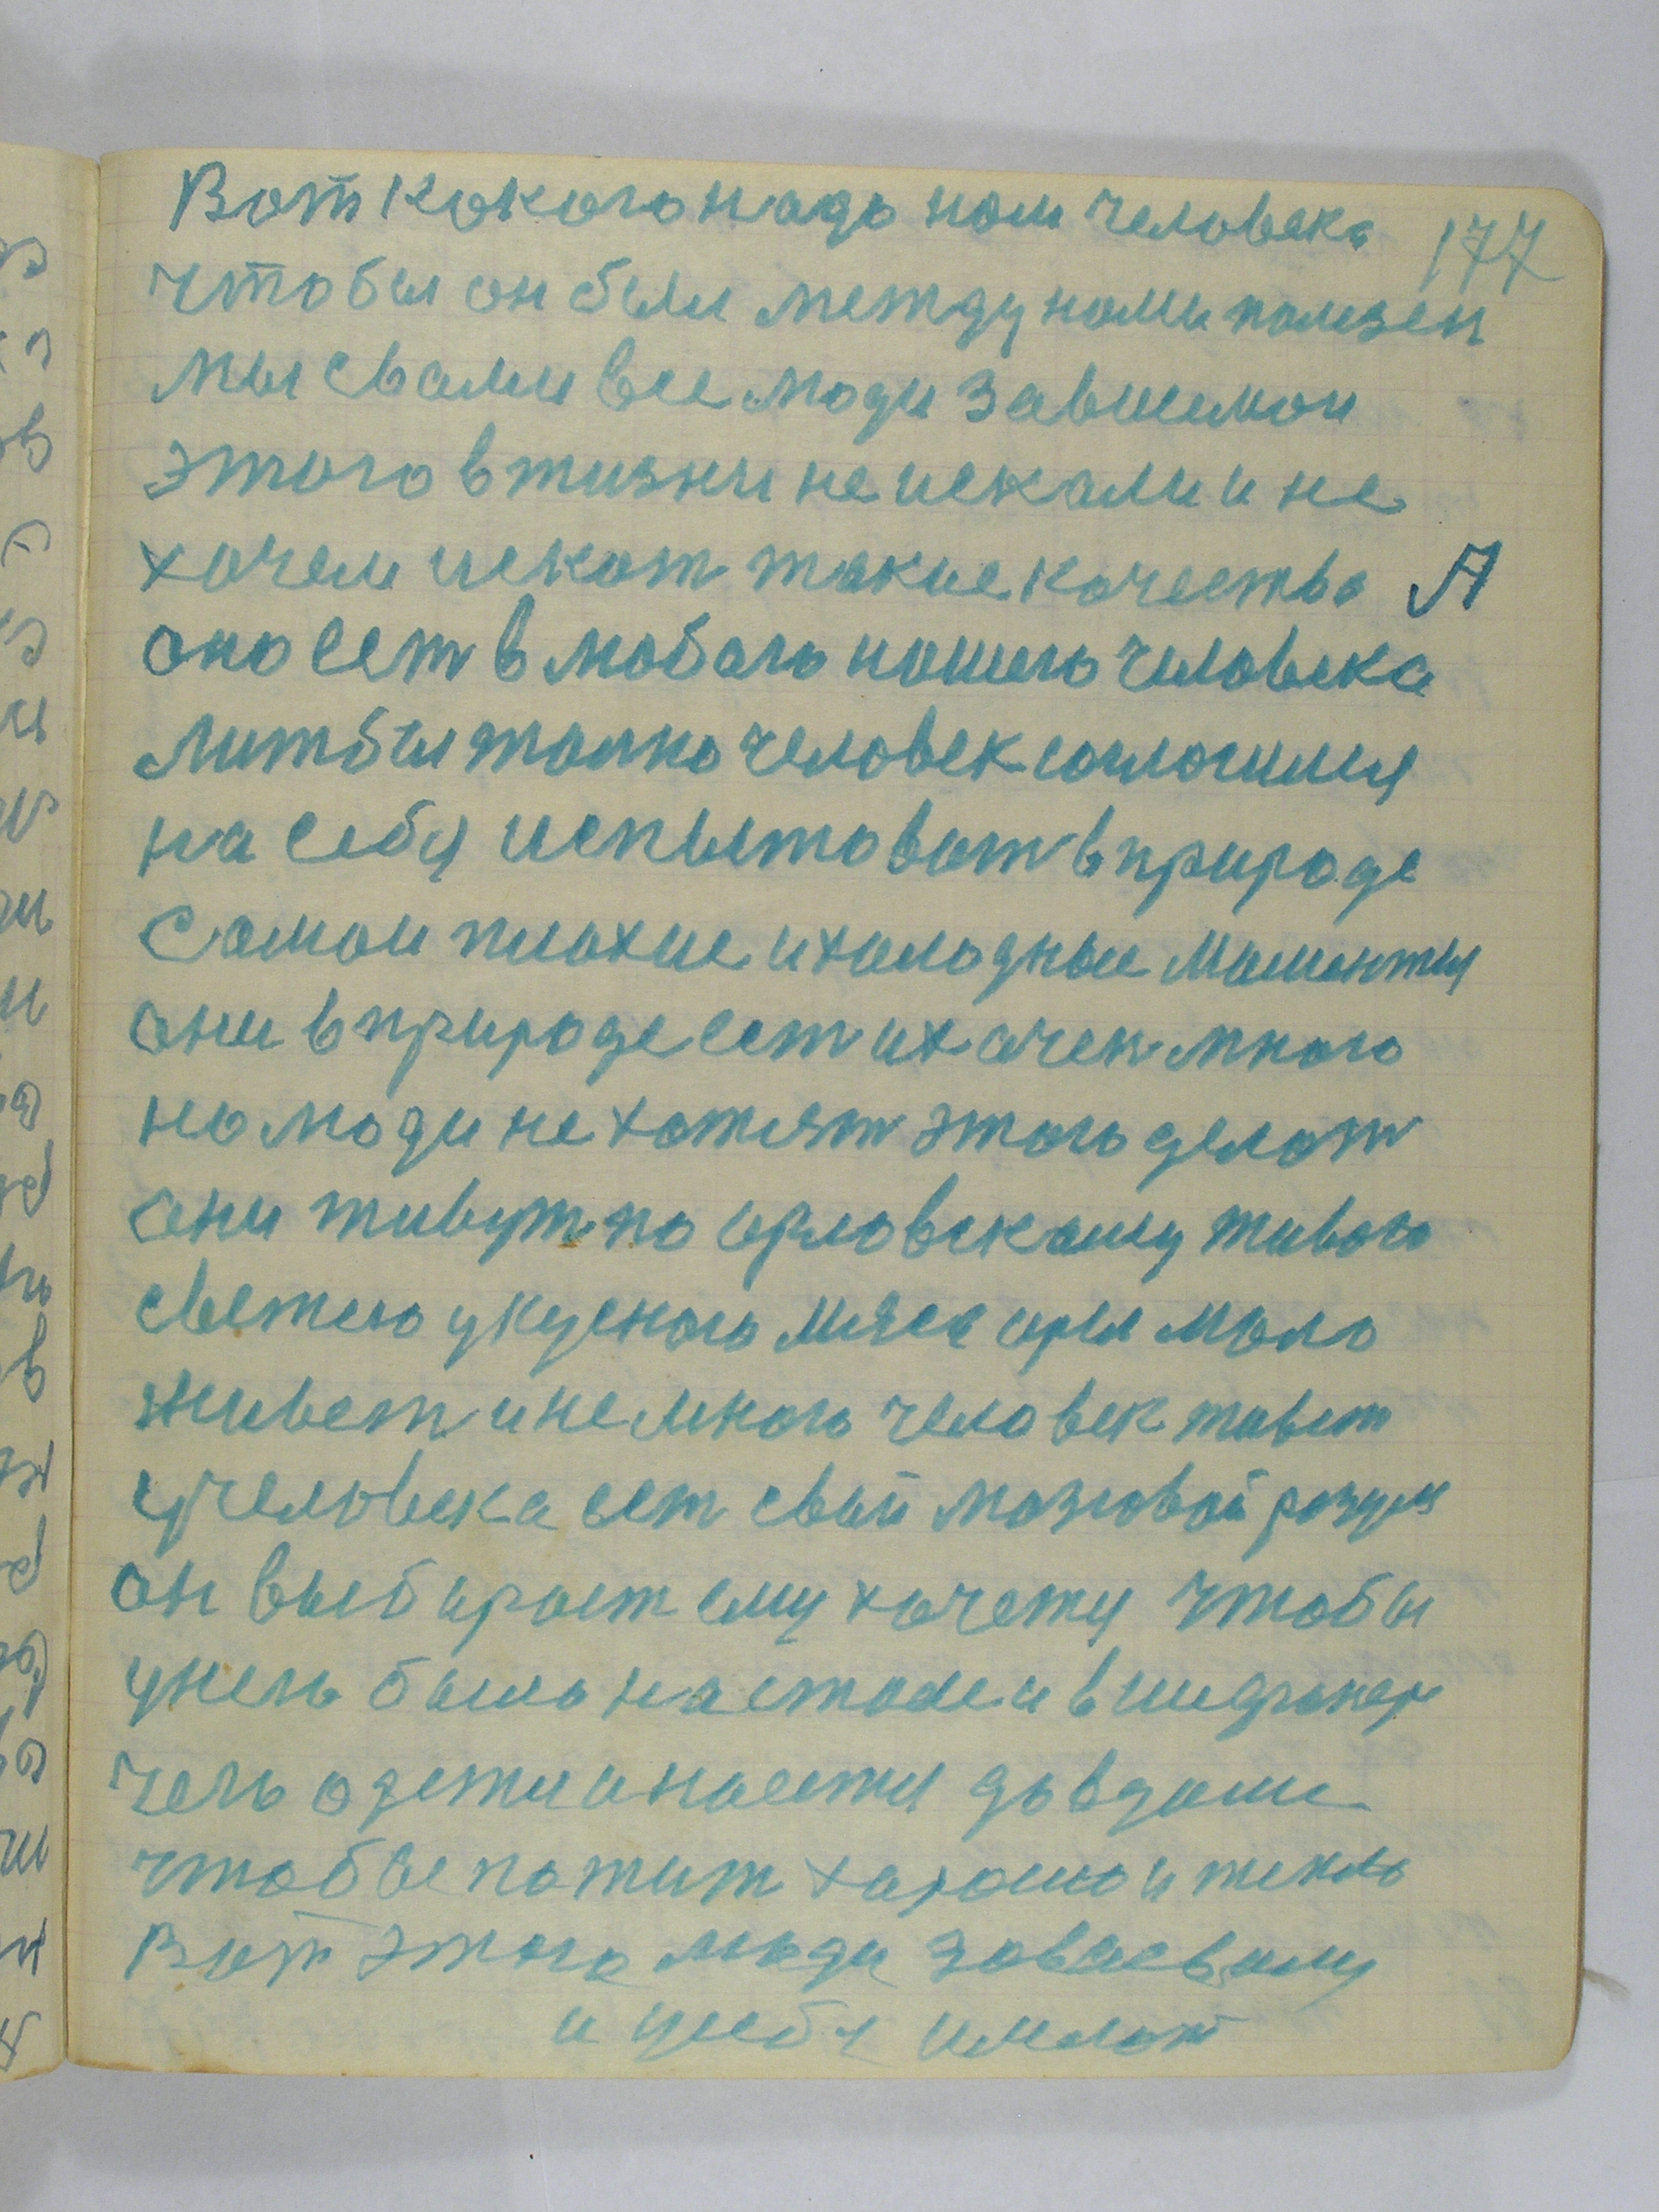 Вот кокого надо нам человека
177
чтобы он были между нами ползен
мы свами вее люди зависимои
этого в жизни не искали и не
хочем искат такие качества А
оно сет в любого нашего человека
лишбы толко человек согласился
на себя испытоват в природе
Самои плохие и халодные маменты
они в природе ест их очен много
но люди не хотят этого делат
они живут по орловскому живого
свежего укусного мяса орел мало
живет и не много человек живет
у человека ест свой мозговой розум
он выбирает ему хочетя чтобы
унего было на столе и в шифанер
чего одетя и наестя да в доме
чтобы пожит харошо и тепло
Вот этого люди
и уиебя имеют